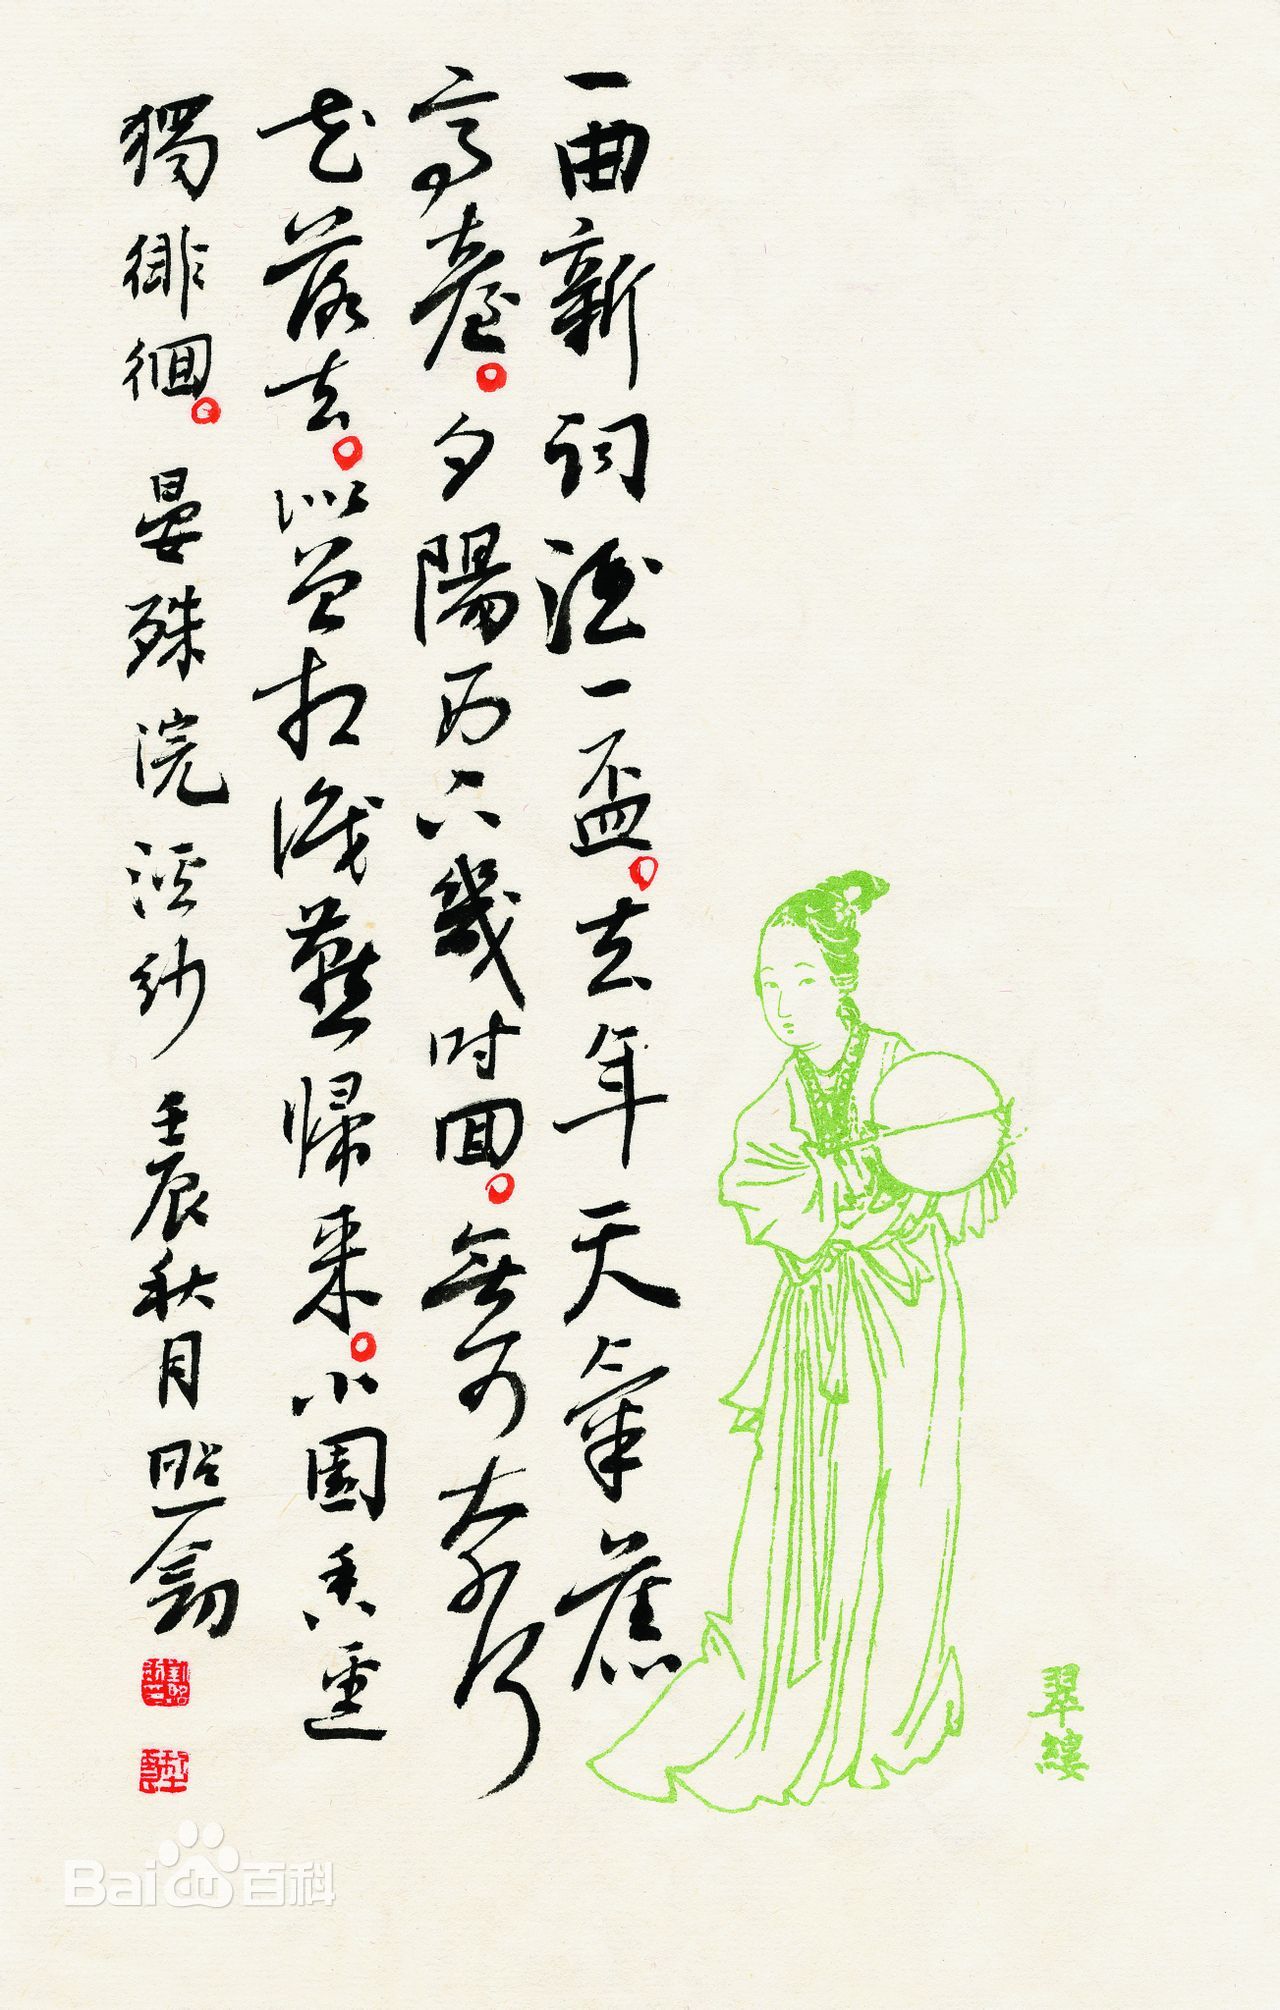 一曲新词酒一盃。去年天氣舊
亭臺。夕陽西下幾时回。無可奈何
花落去。似曾相識燕歸来。小園香逕
獨徘徊。晏殊浣溪纱 壬辰秋月 照
翠縷
Bai 百科